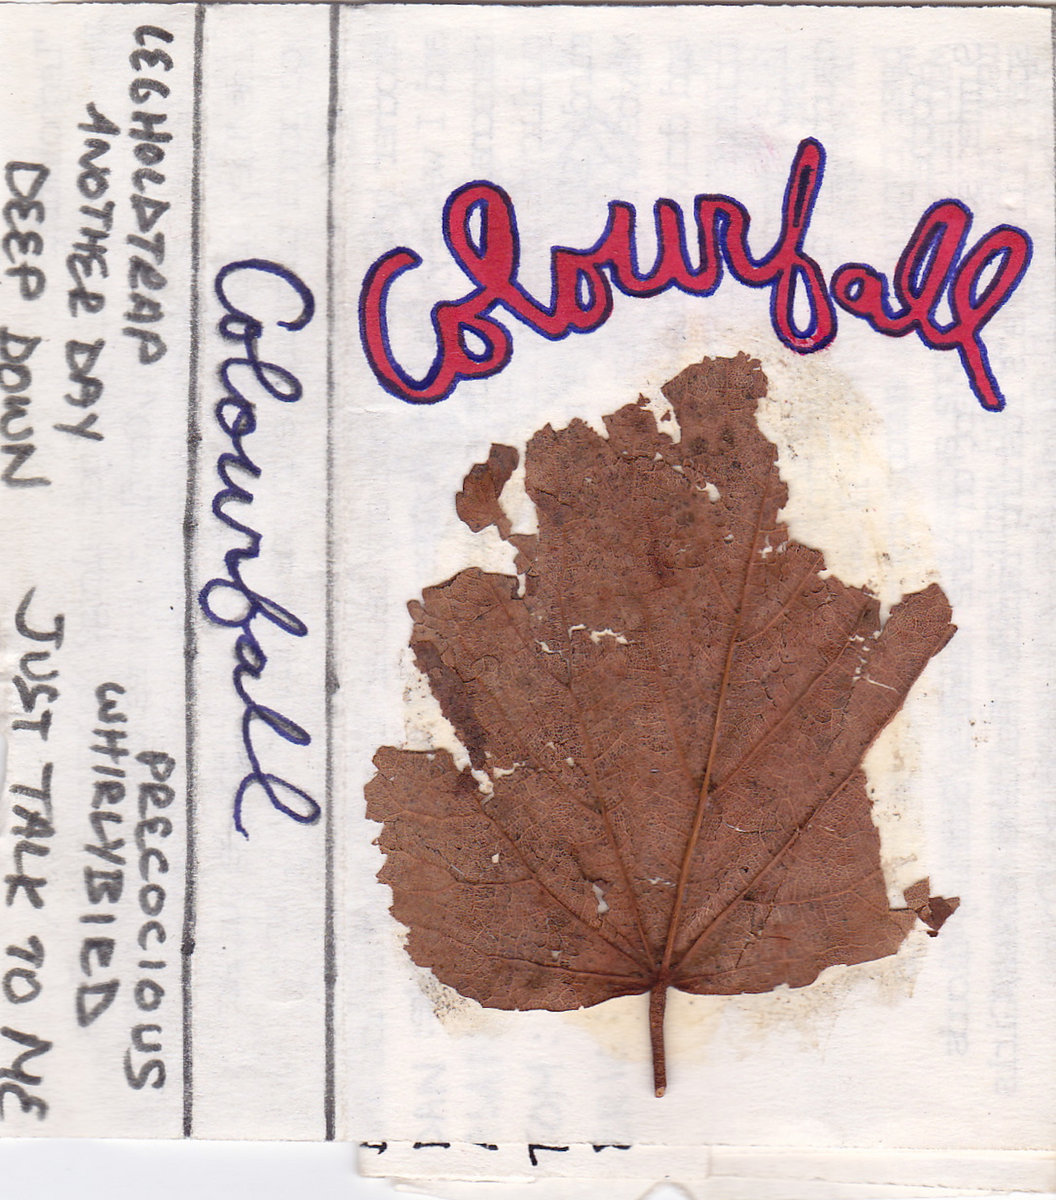 Colourfall
Colourfall
LEGHOLDTRAP
ANOTHER DAY
DEEP DOWN
PRECOCIOUS
WHIRLYBIRD
JUST TALK TO ME